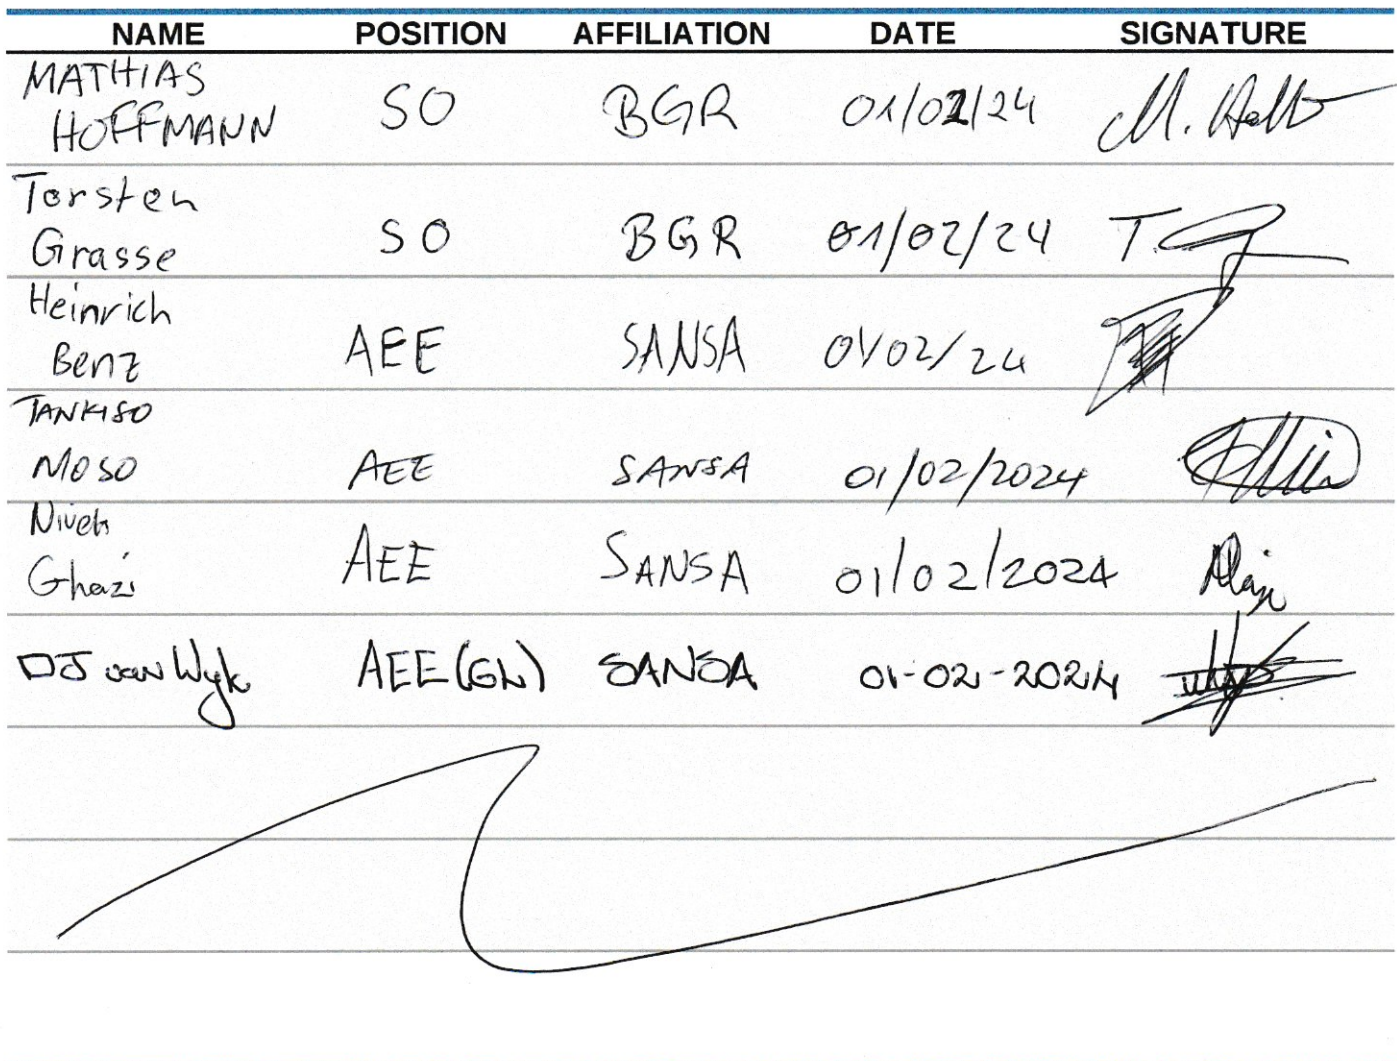 NAME POSITION AFFILIATION DATE SIGNATURE
MATHIAS
HOFFMANN SO BGR 01/02/24 M. Hoff
Torsten
Grasse SO BGR 01/02/24 T. G
Heinrich
Benz AEE SANSA 01/02/24
TANKISO
MOSO AEE SANSA 01/02/2024
Niveh
Ghazi AEE SANSA 01/02/2024
DJ van Wyk AEE (GL) SANSA 01-02-2024